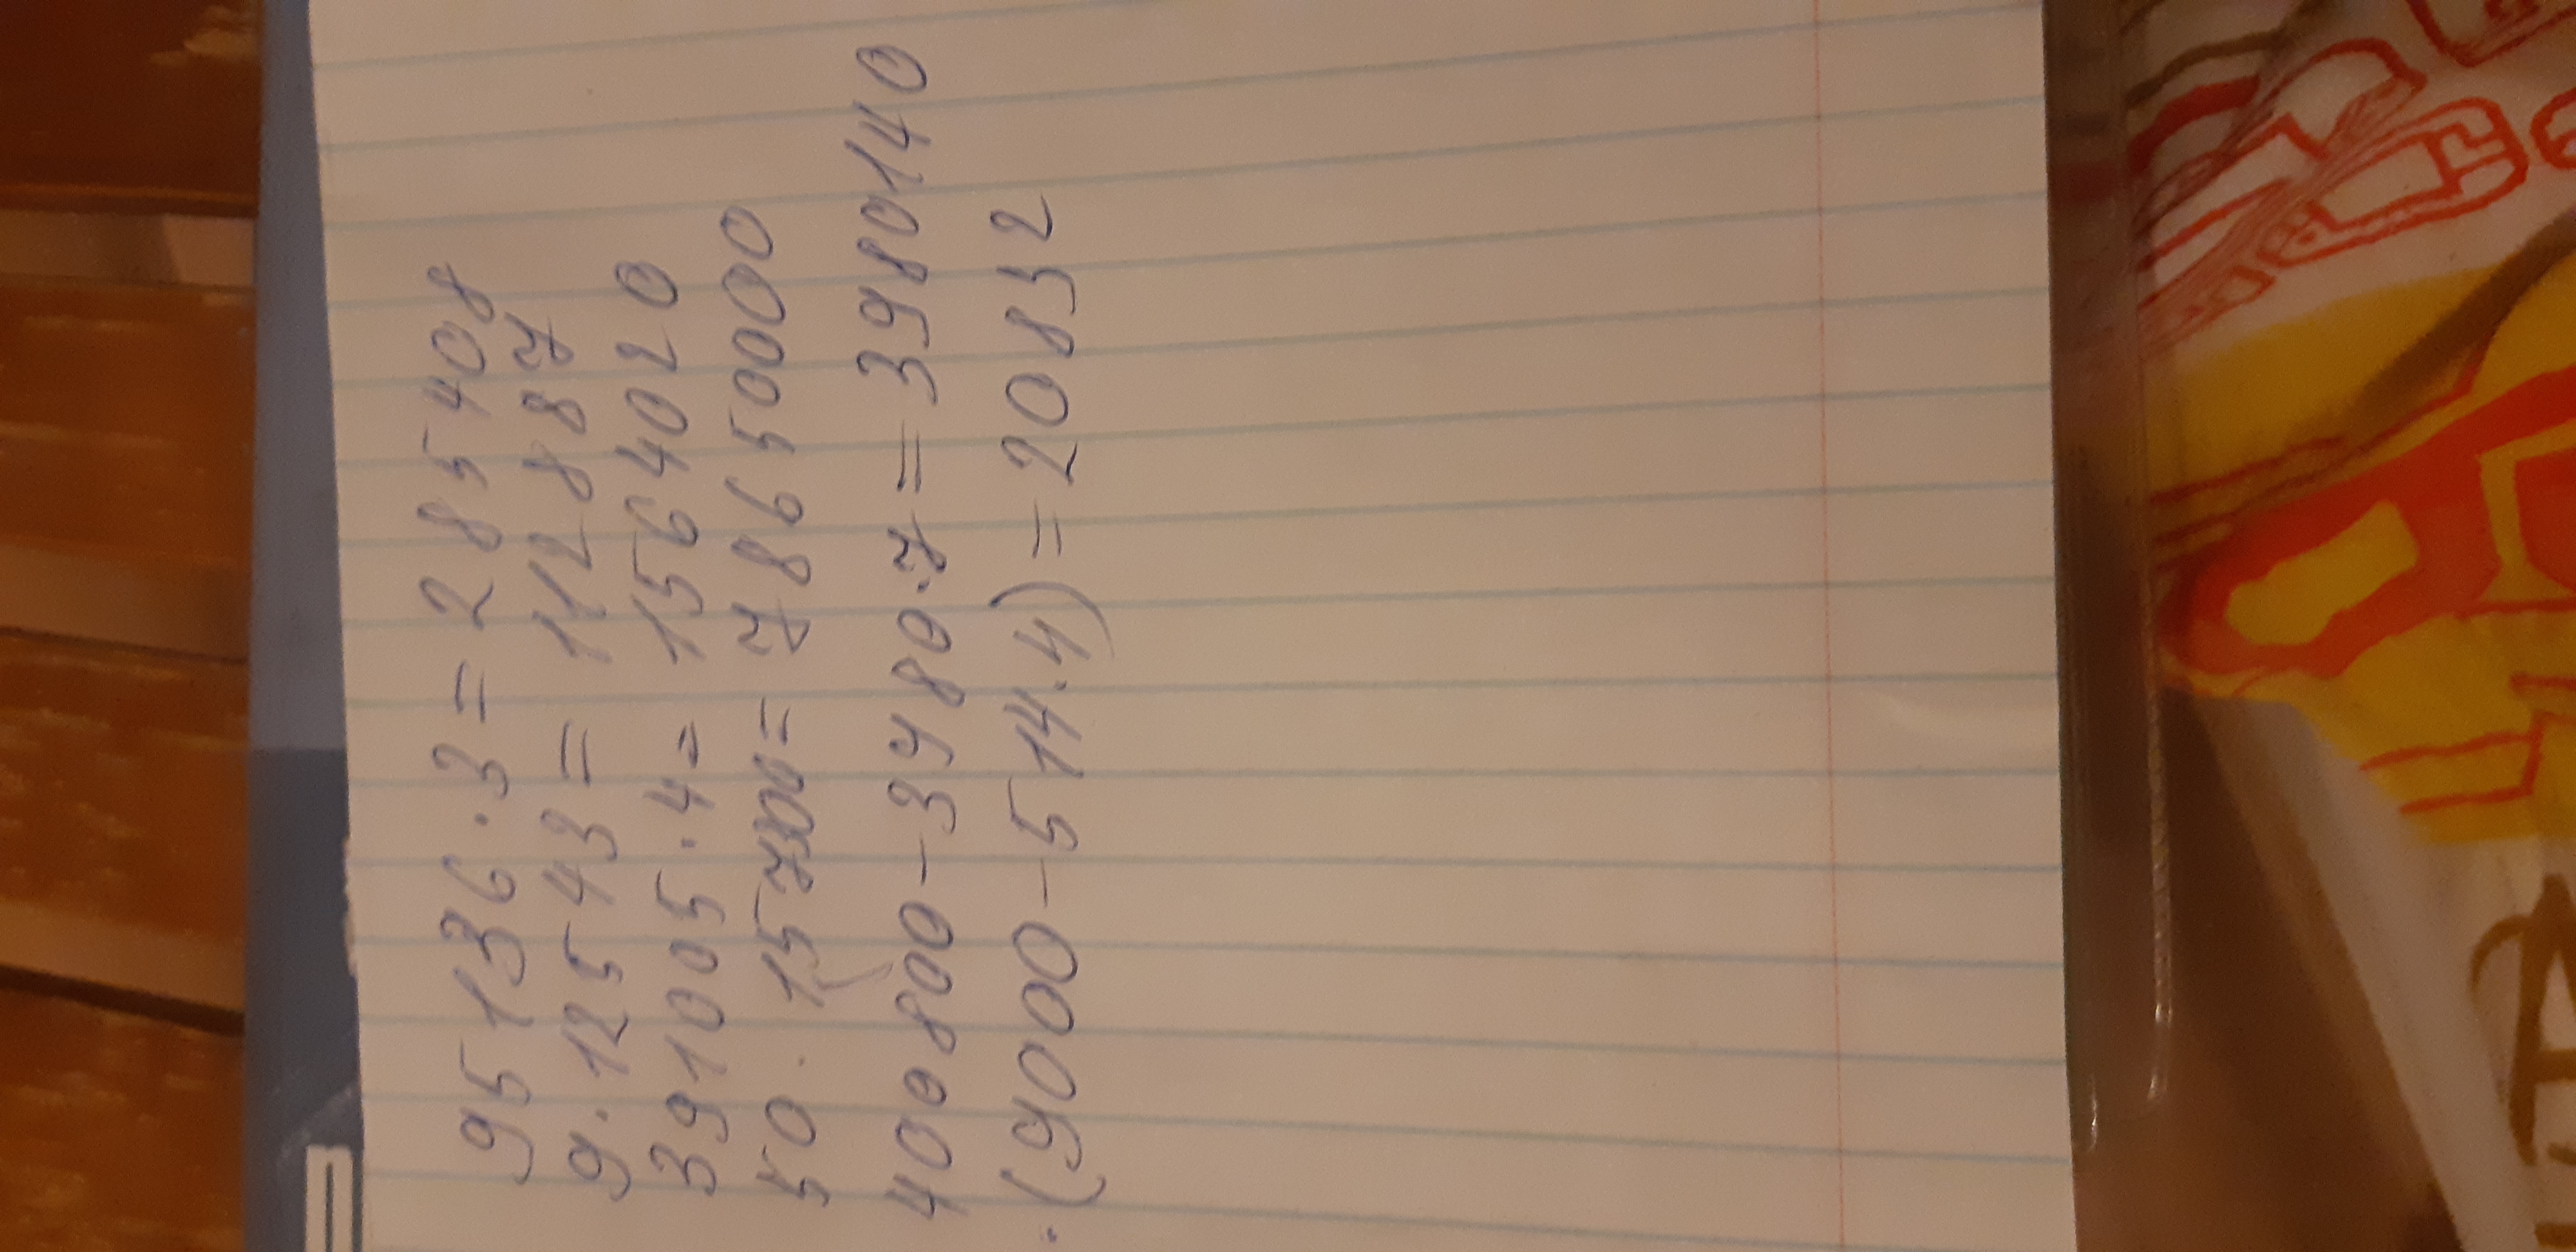 95136·3=285408
9·12543=112887
391005·4=1564020
50·1573000=78650000
400800-3480·7=3980140
·(9000-514·4)=20832